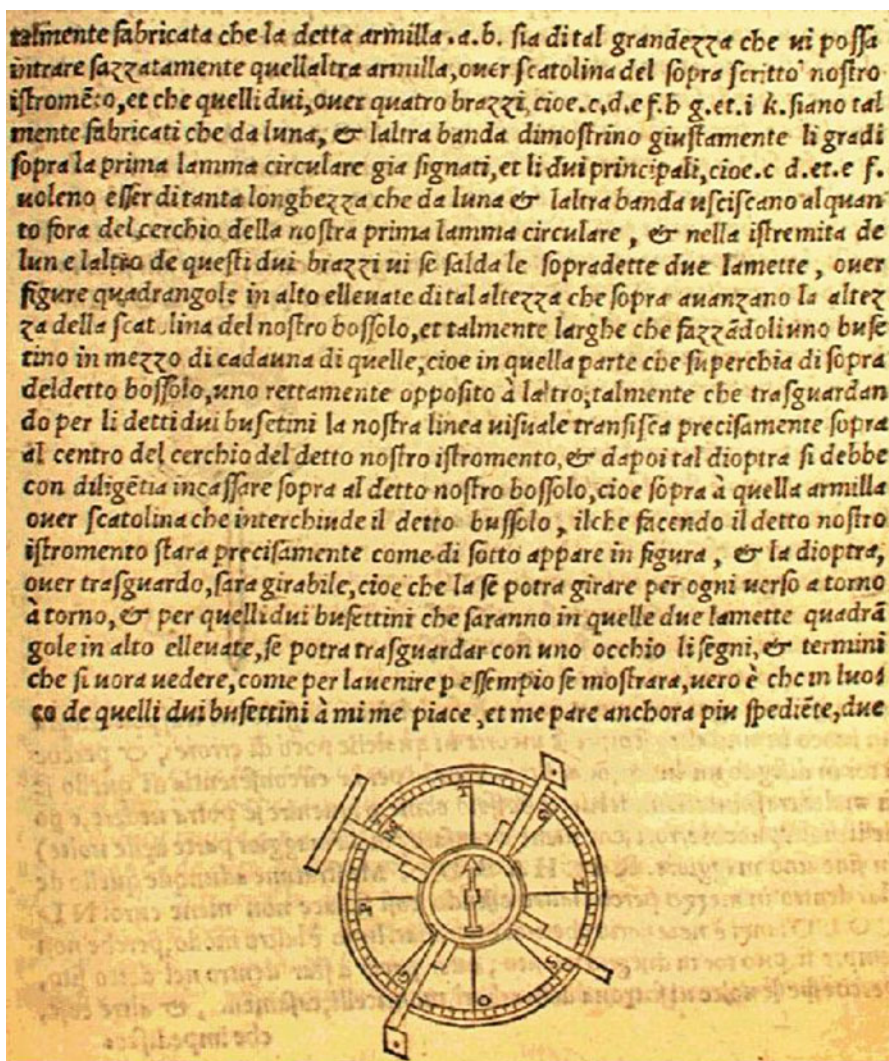 talmente fabricata che la detta armilla .a.b. sia di tal grandezza che ui possa
intrare sazzatamente quellaltra armilla, ouer scatolina del sopra scritto nostro
istromẽto, et che quelli dui, ouer quatro brazzi, cioe .c, d.e f.h g. et. i k. siano tal
mente fabricati che da luna, & laltra banda dimostrino giustamente li gradi
sopra la prima lamma circulare gia signati, et li dui principali, cioe .c d. et. e f.
uoleno esser di tanta longhezza che da luna & laltra banda usciscano alquan
to fora del cerchio della nostra prima lamma circulare, & nella istremita de
lun e laltro de questi dui brazzi ui se salda le sopradette due lamette, ouer
figure quadrangole in alto elleuate di tal altezza che sopra auanzano la altez
za della scatolina del nostro bossolo, et talmente larghe che fazzãdoli uno buse
tino in mezzo di cadauna di quelle, cioe in quella parte che superchia di sopra
del detto bossolo, uno rettamente opposito à laltro, talmente che trasguardan
do per li detti dui busetini la nostra linea uisuale transisca precisamente sopra
al centro del cerchio del detto nostro istromento, & dapoi tal dioptra si debbe
con diligẽtia incassare sopra al detto nostro bossolo, cioe sopra à quella armilla
ouer scatolina che interchiude il detto bussolo, ilche facendo il detto nostro
istromento stara precisamente come di sotto appare in figura, & la dioptra,
ouer trasguardo, sara girabile, cioe che la se potra girare per ogni uerso a torno
à torno, & per quelli dui busettini che saranno in quelle due lamette quadrã
gole in alto elleuate, se potra trasguardar con uno occhio li segni, & termini
che si uora uedere, come per lauenire p essempio se mostrara, uero è che in luo
co de quelli dui busettini à mi me piace, et me pare anchora piu spediẽte, due
T
L
S
O